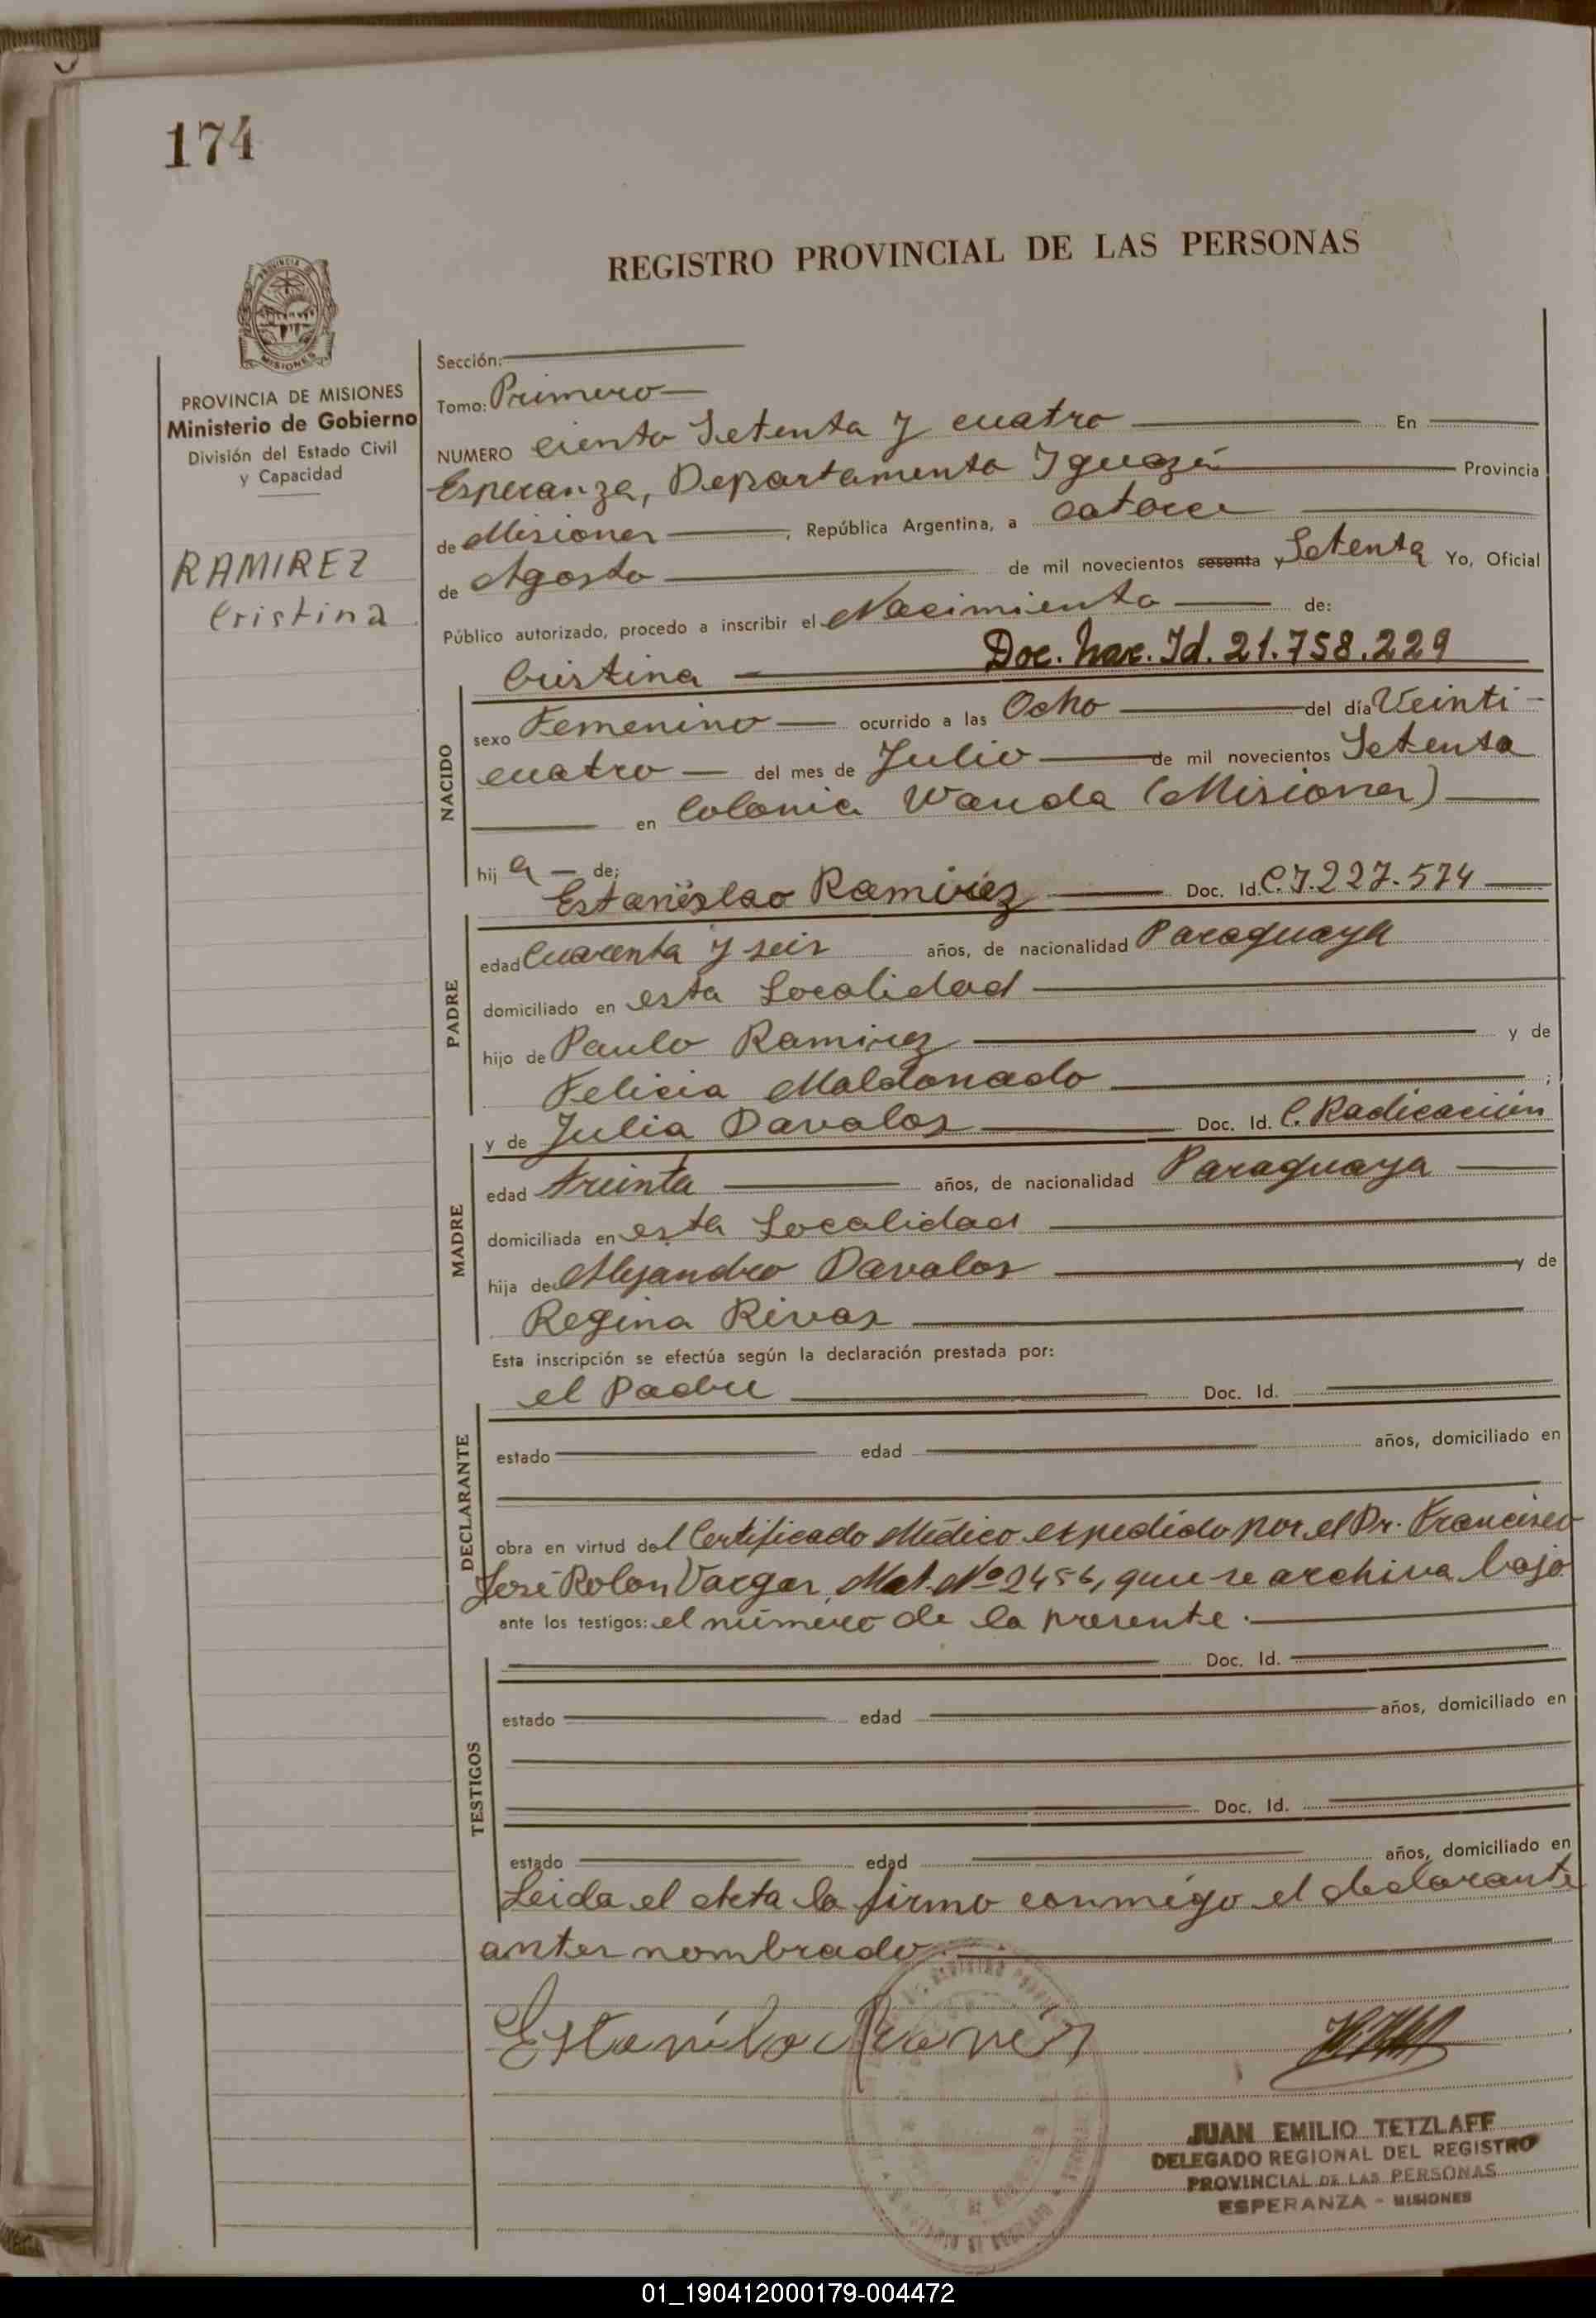 174
REGISTRO PROVINCIAL DE LAS PERSONAS
PROVINCIA DE MISIONES
Ministerio de Gobierno
División del Estado Civil
y Capacidad
RAMIREZ
Cristina
Sección:
Tomo: Primero
NUMERO ciento Setenta y cuatro En
Esperanza, Departamento Iguazú Provincia
de Misiones, República Argentina, a catorce
de Agosto de mil novecientos sesenta y Setenta Yo, Oficial
Público autorizado, procedo a inscribir el Nacimiento de:
Cristina Doc. Nac. Id. 21.758.229
NACIDO
sexo Femenino ocurrido a las Ocho del día Veinti-
cuatro del mes de Julio de mil novecientos Setenta
en Colonia Wanda (Misiones)
hija de:
Estanislao Ramirez Doc. Id. C.I.227.574
PADRE
edad Cuarenta y seis años, de nacionalidad Paraguaya
domiciliado en esta Localidad
hijo de Paulo Ramirez y de
Felicia Maldonado ;
y de Julia Davalos Doc. Id. C. Radicación
MADRE
edad treinta años, de nacionalidad Paraguaya
domiciliada en esta Localidad
hija de Alejandro Davalos y de
Regina Rivas
Esta inscripción se efectúa según la declaración prestada por:
el Padre Doc. Id.
DECLARANTE
estado edad años, domiciliado en
obra en virtud del Certificado Médico expedido por el Dr. Francisco
José Rolon Vargas, Mat. Nº 2456, que se archiva bajo
ante los testigos: el número de la presente.
Doc. Id.
TESTIGOS
estado edad años, domiciliado en
Doc. Id.
estado edad años, domiciliado en
Leida el Acta la firmo conmigo el declarante
antes nombrado.
Estanislao Ramirez
JUAN EMILIO TETZLAFF
DELEGADO REGIONAL DEL REGISTRO
PROVINCIAL DE LAS PERSONAS
ESPERANZA - MISIONES
01_190412000179-004472